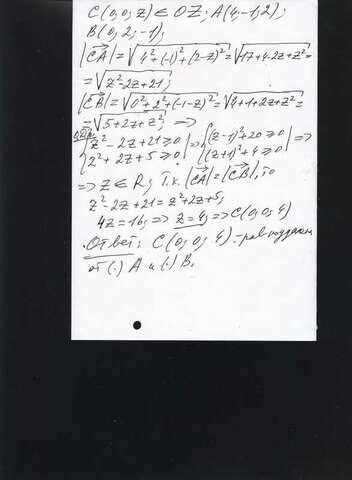 C(0;0;z) ∈ OZ; A(4;-1;2);
B(0;2;-1);
|CA| = √(4²+(-1)²+(2-z)²) = √(17+4-2z+z²) =
= √(z²-2z+21);
|CB| = √(0²+2²+(-1-z)²) = √(4+1+2z+z²) =
= √(5+2z+z²); =>
ОДЗ: {z²-2z+21≥0 => {(z-1)²+20≥0 =>
{z²+2z+5≥0 {(z+1)²+4≥0
=> z ∈ R; Т.к. |CA| = |CB|, то
z²-2z+21 = z²+2z+5;
4z=16; => z=4; => C(0;0;4)
Ответ: C(0;0;4) - равноудален
от (·) A и (·) B.